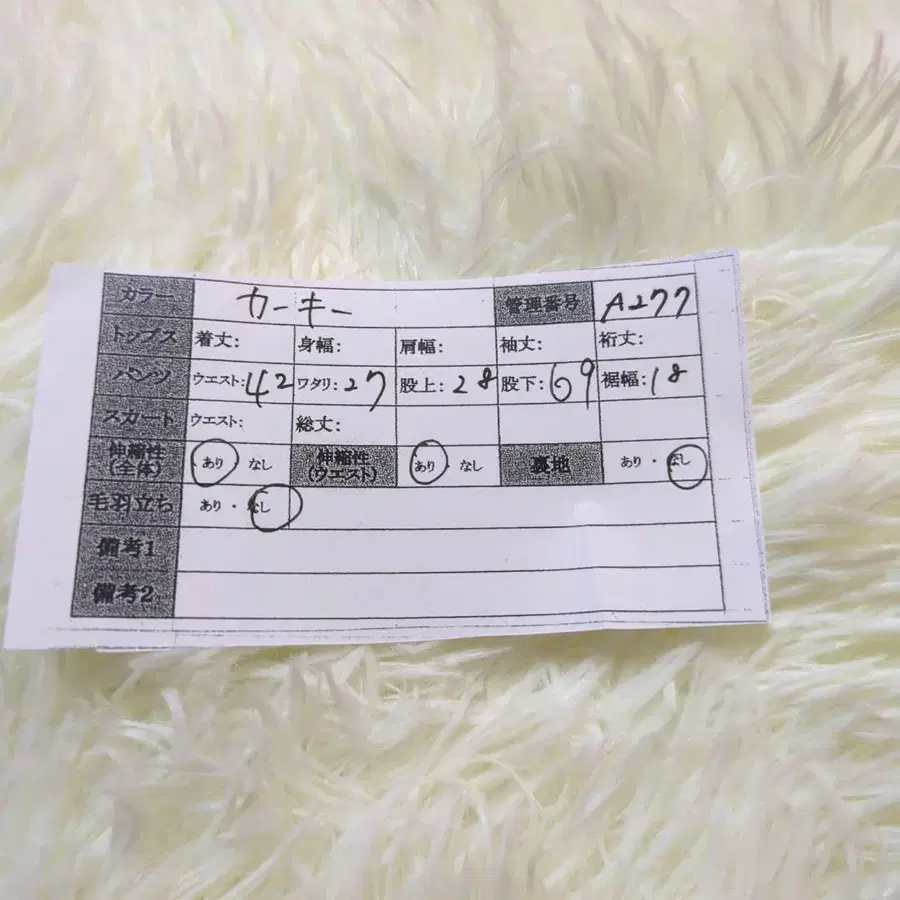 カラー カーキー 管理番号 A277
トップス 着丈: 身幅: 肩幅: 袖丈: 裄丈:
パンツ ウエスト:42 ワタリ:27 股上:28 股下:69 裾幅:18
スカート ウエスト: 総丈:
伸縮性(全体) あり・なし 伸縮性(ウエスト) あり・なし 裏地 あり・なし
毛羽立ち あり・なし
備考1
備考2